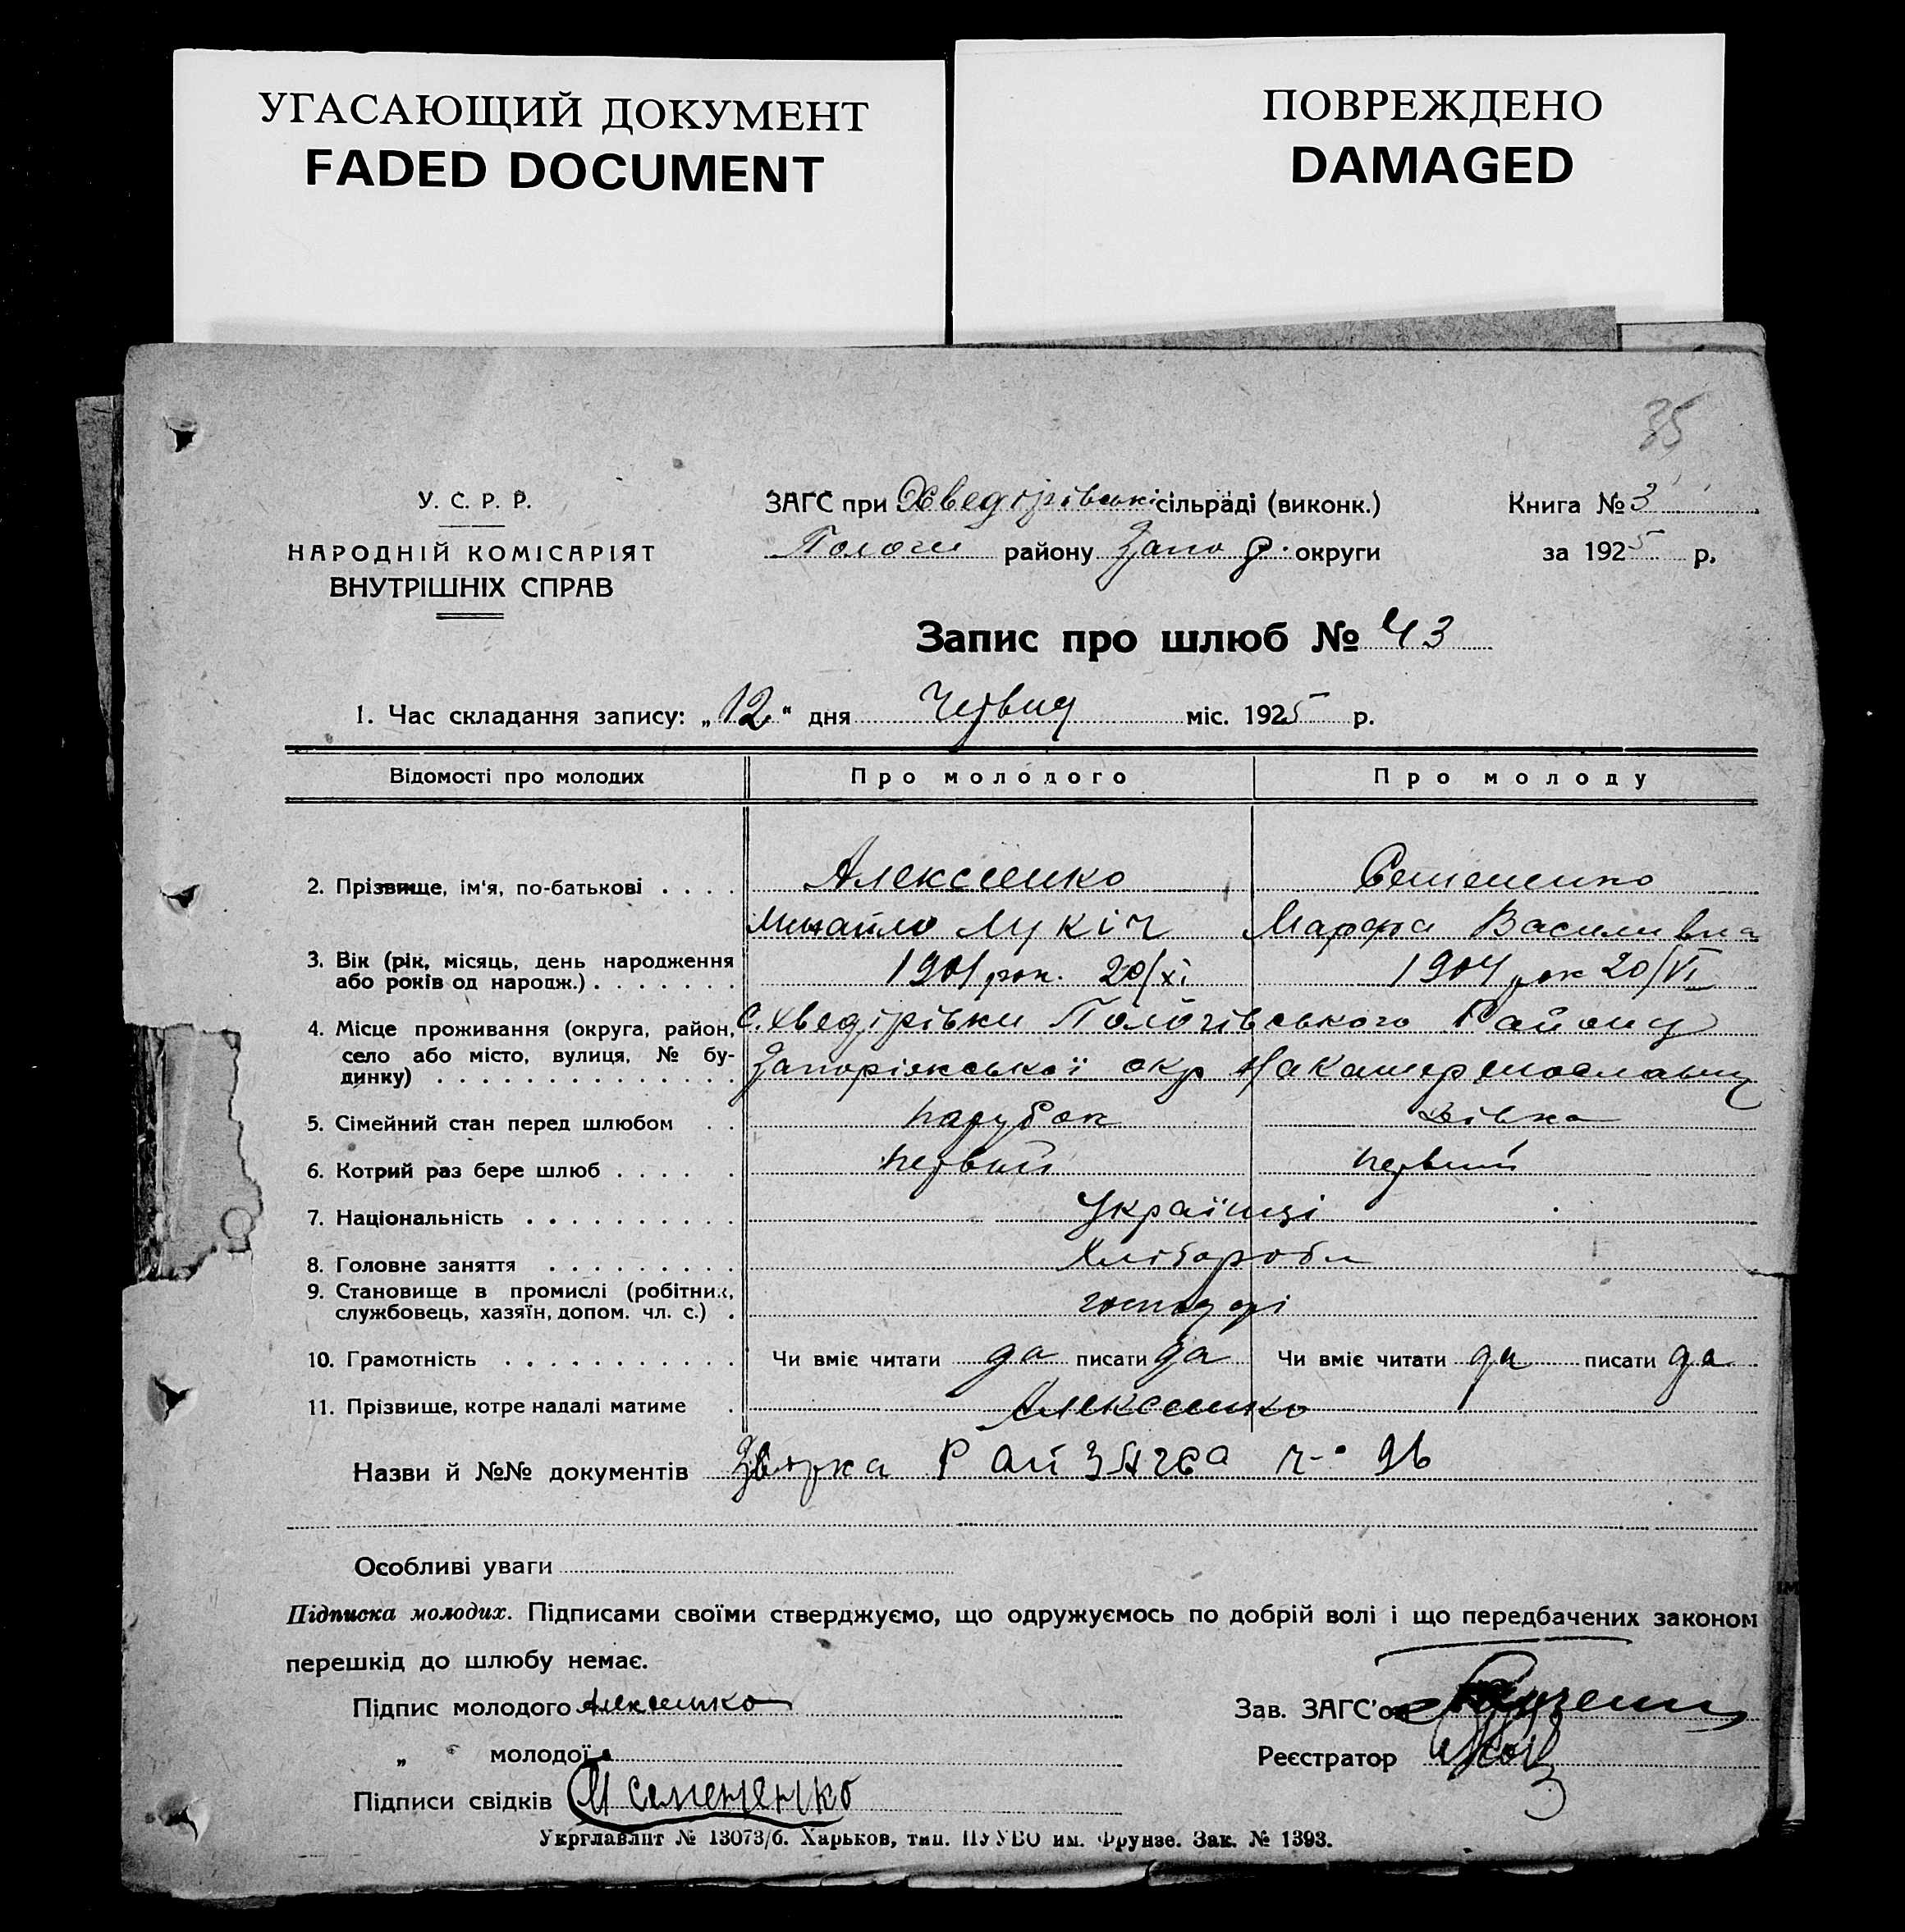 УГАСАЮЩИЙ ДОКУМЕНТ
FADED DOCUMENT
ПОВРЕЖДЕНО
DAMAGED
35
У. С. Р. Р.
НАРОДНІЙ КОМІСАРІЯТ
ВНУТРІШНІХ СПРАВ
ЗАГС при Хведорівські сільраді (виконк.)
Пологи району Запор. округи
Книга № 3
за 1925 р.
Запис про шлюб № 43
1. Час складання запису: „12" дня Червця міс. 1925 р.
Відомості про молодих Про молодого Про молоду
2. Прізвище, ім'я, по-батькові . . . . Алексєенко Семененко
Михайло Лукіч Марфа Василивна
3. Вік (рік, місяць, день народження 1901 рок. 20/XI 1904 рок 20/VI
або років од народж.) . . . . . . .
4. Місце проживання (округа, район, с. Хведірівки Пологівського Району
село або місто, вулиця, № бу-
динку) . . . . . . . . . . . . . . Запоріжської окр
5. Сімейний стан перед шлюбом . . парубок дівка
6. Котрий раз бере шлюб . . . . . первий первий
7. Національність . . . . . . . . . . Українці
8. Головне заняття . . . . . . . . . Хлібороби
9. Становище в промислі (робітник, господарі
службовець, хазяїн, допом. чл. с.) .
10. Грамотність . . . . . . . . . . . Чи вміє читати да писати да Чи вміє читати да писати да
11. Прізвище, котре надалі матиме . Алексєенко
Назви й №№ документів РайЗАГСа ч-° 96
Особливі уваги
Підписка молодих. Підписами своїми стверджуємо, що одружуємось по добрій волі і що передбачених законом
перешкід до шлюбу немає.
Підпис молодого Алексеенко
Зав. ЗАГС'ом
„ " молодої
Реєстратор
Підписи свідків М Семененко
Укрглавліт № 13073/б. Харьков, тип. ПУУВО им. Фрунзе. Зак. № 1393.